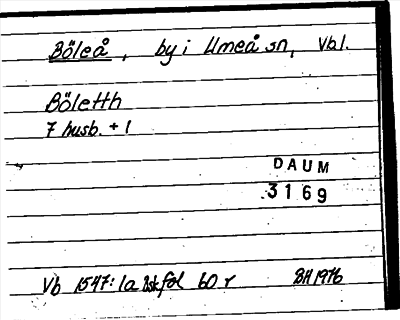 Böleå, by i Umeå sn, Vbl.
Böletth
7 husb. + 1
DAUM
3169
Vb 1547: 1a bskfol 60 r BH 1976